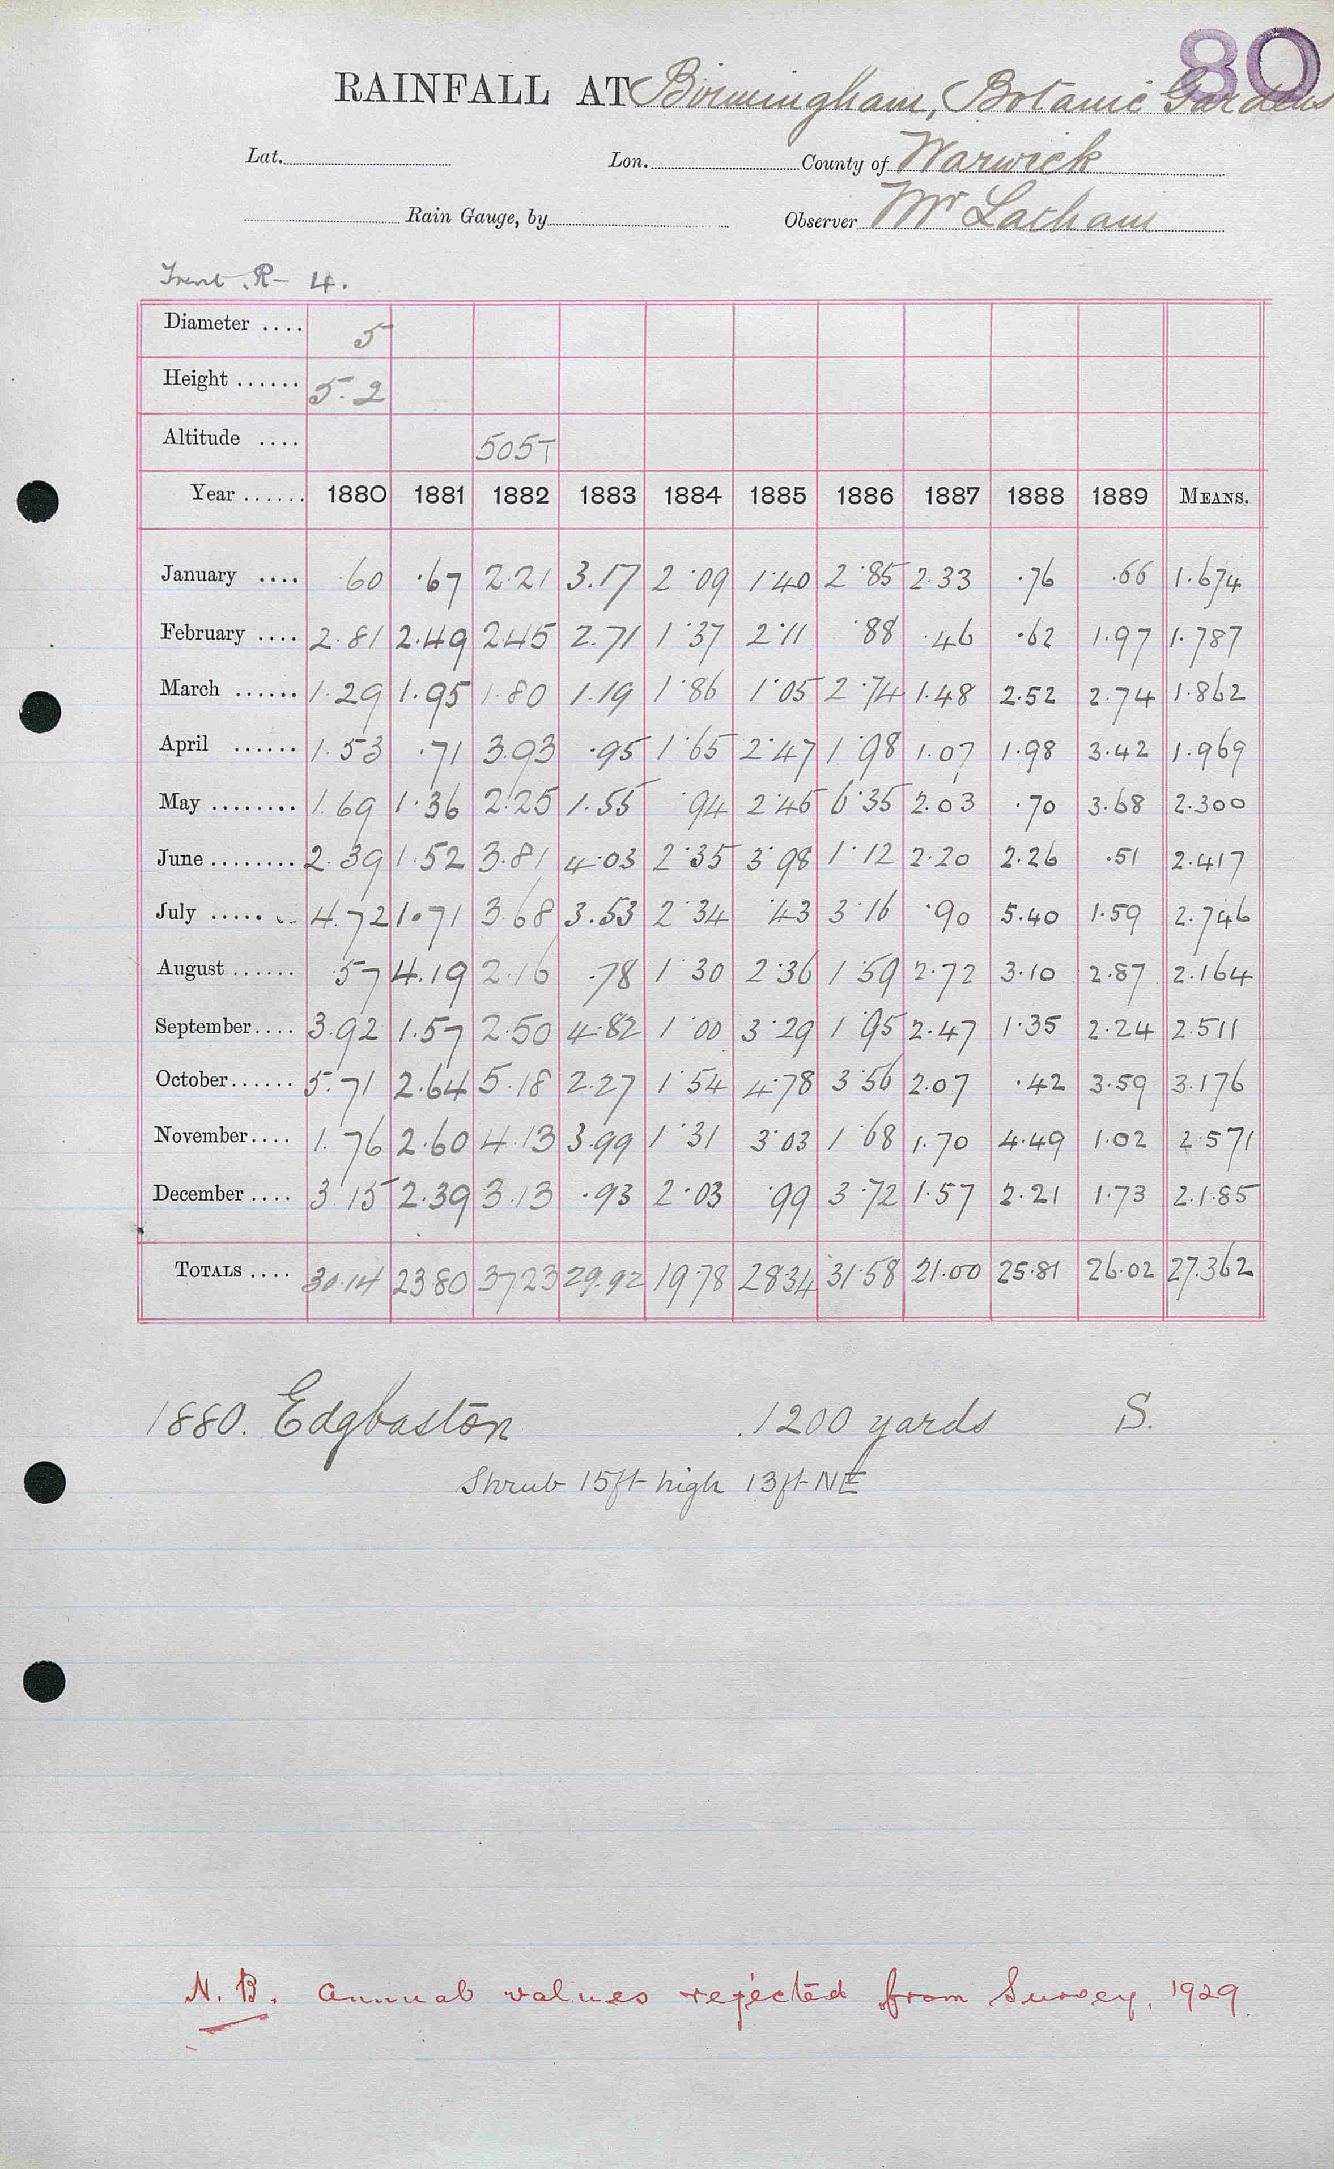 80
RAINFALL AT Birmingham, Botanic Gardens
Lat. Lon. County of Warwick
Rain Gauge, by Observer Mr Latham
Trent R- 4.
Diameter .... 5
Height ...... 5.2
Altitude .... 505T
Year ...... 1880 1881 1882 1883 1884 1885 1886 1887 1888 1889 MEANS.
January .... .60 .67 2.21 3.17 2.09 1.40 2.85 2.33 .76 .66 1.674
February .... 2.81 2.49 2.45 2.71 1.37 2.11 .88 .46 .62 1.97 1.787
March ...... 1.29 1.95 1.80 1.19 1.86 1.05 2.74 1.48 2.52 2.74 1.862
April ...... 1.53 .71 3.93 .95 1.65 2.47 1.98 1.07 1.98 3.42 1.969
May ........ 1.69 1.36 2.25 1.55 .94 2.45 6.35 2.03 .70 3.68 2.300
June ........ 2.39 1.52 3.81 4.03 2.35 3.98 1.12 2.20 2.26 .51 2.417
July ..... 4.72 1.71 3.68 3.53 2.34 .43 3.16 .90 5.40 1.59 2.746
August ...... .57 4.19 2.16 .78 1.30 2.36 1.59 2.72 3.10 2.87 2.164
September .... 3.92 1.57 2.50 4.82 1.00 3.29 1.95 2.47 1.35 2.24 2.511
October ...... 5.71 2.64 5.18 2.27 1.54 4.78 3.56 2.07 .42 3.59 3.176
November .... 1.76 2.60 4.13 3.99 1.31 3.03 1.68 1.70 4.49 1.02 2.571
December .... 3.15 2.39 3.13 .93 2.03 .99 3.72 1.57 2.21 1.73 2.185
TOTALS .... 30.14 23.80 37.23 29.92 19.78 28.34 31.58 21.00 25.81 26.02 27.362
1880. Edgbaston 1200 yards S.
Shrub 15ft high 13ft NE
N.B. annual values rejected from Survey, 1929